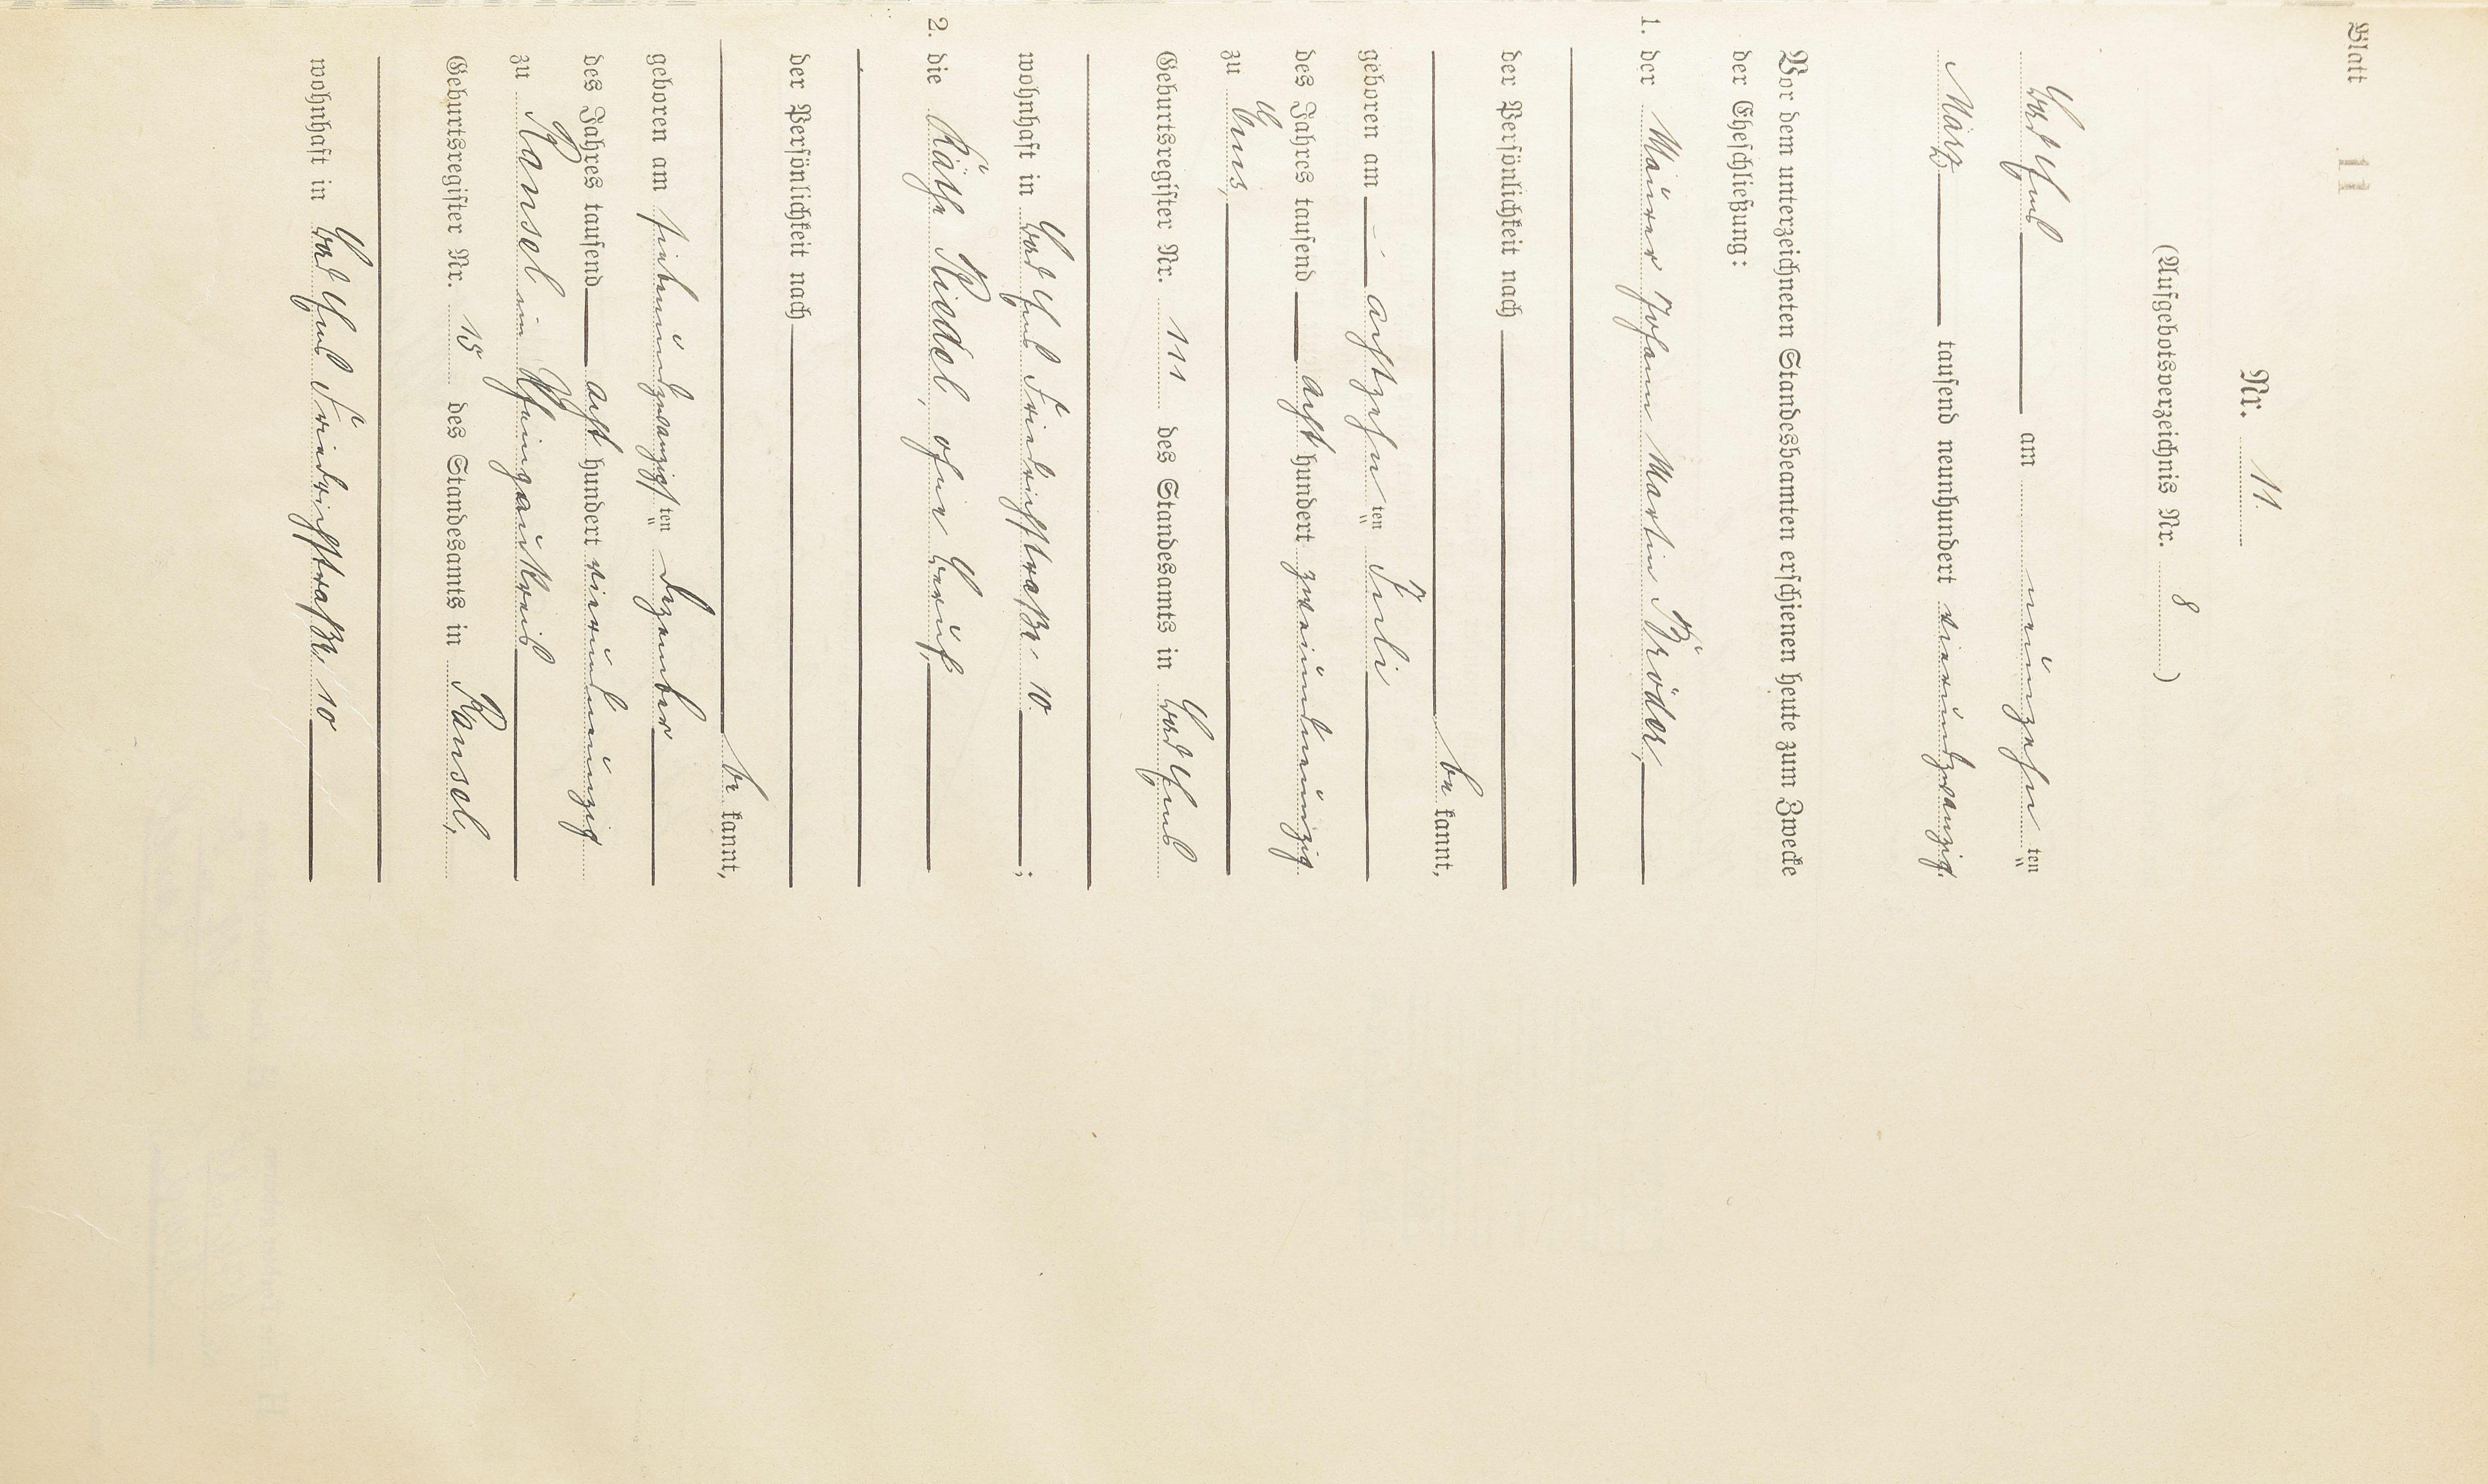 Blatt 11
Nr. 11.
(Aufgebotsverzeichnis Nr. 8)
Bad Ems am neunzehnten
März tausend neunhundert vierundzwanzig.
Vor dem unterzeichneten Standesbeamten erschienen heute zum Zwecke
der Eheschließung:
1. der Maurer Johann Martin Bröder,
der Persönlichkeit nach
be kannt,
geboren am achtzehnten Juli
des Jahres tausend acht hundert zweiundneunzig
zu Ems,
Geburtsregister Nr. 111 des Standesamts in Bad Ems
wohnhaft in Bad Ems Friedrichstraße 10.;
2. die Käthe Riedel, ohne Beruf,
der Persönlichkeit nach
be kannt,
geboren am siebenundzwanzigsten Dezember
des Jahres tausend acht hundert vierundneunzig
zu Ransel im Rheingaukreis
Geburtsregister Nr. 15 des Standesamts in Ransel,
wohnhaft in Bad Ems Friedrichstraße, 10